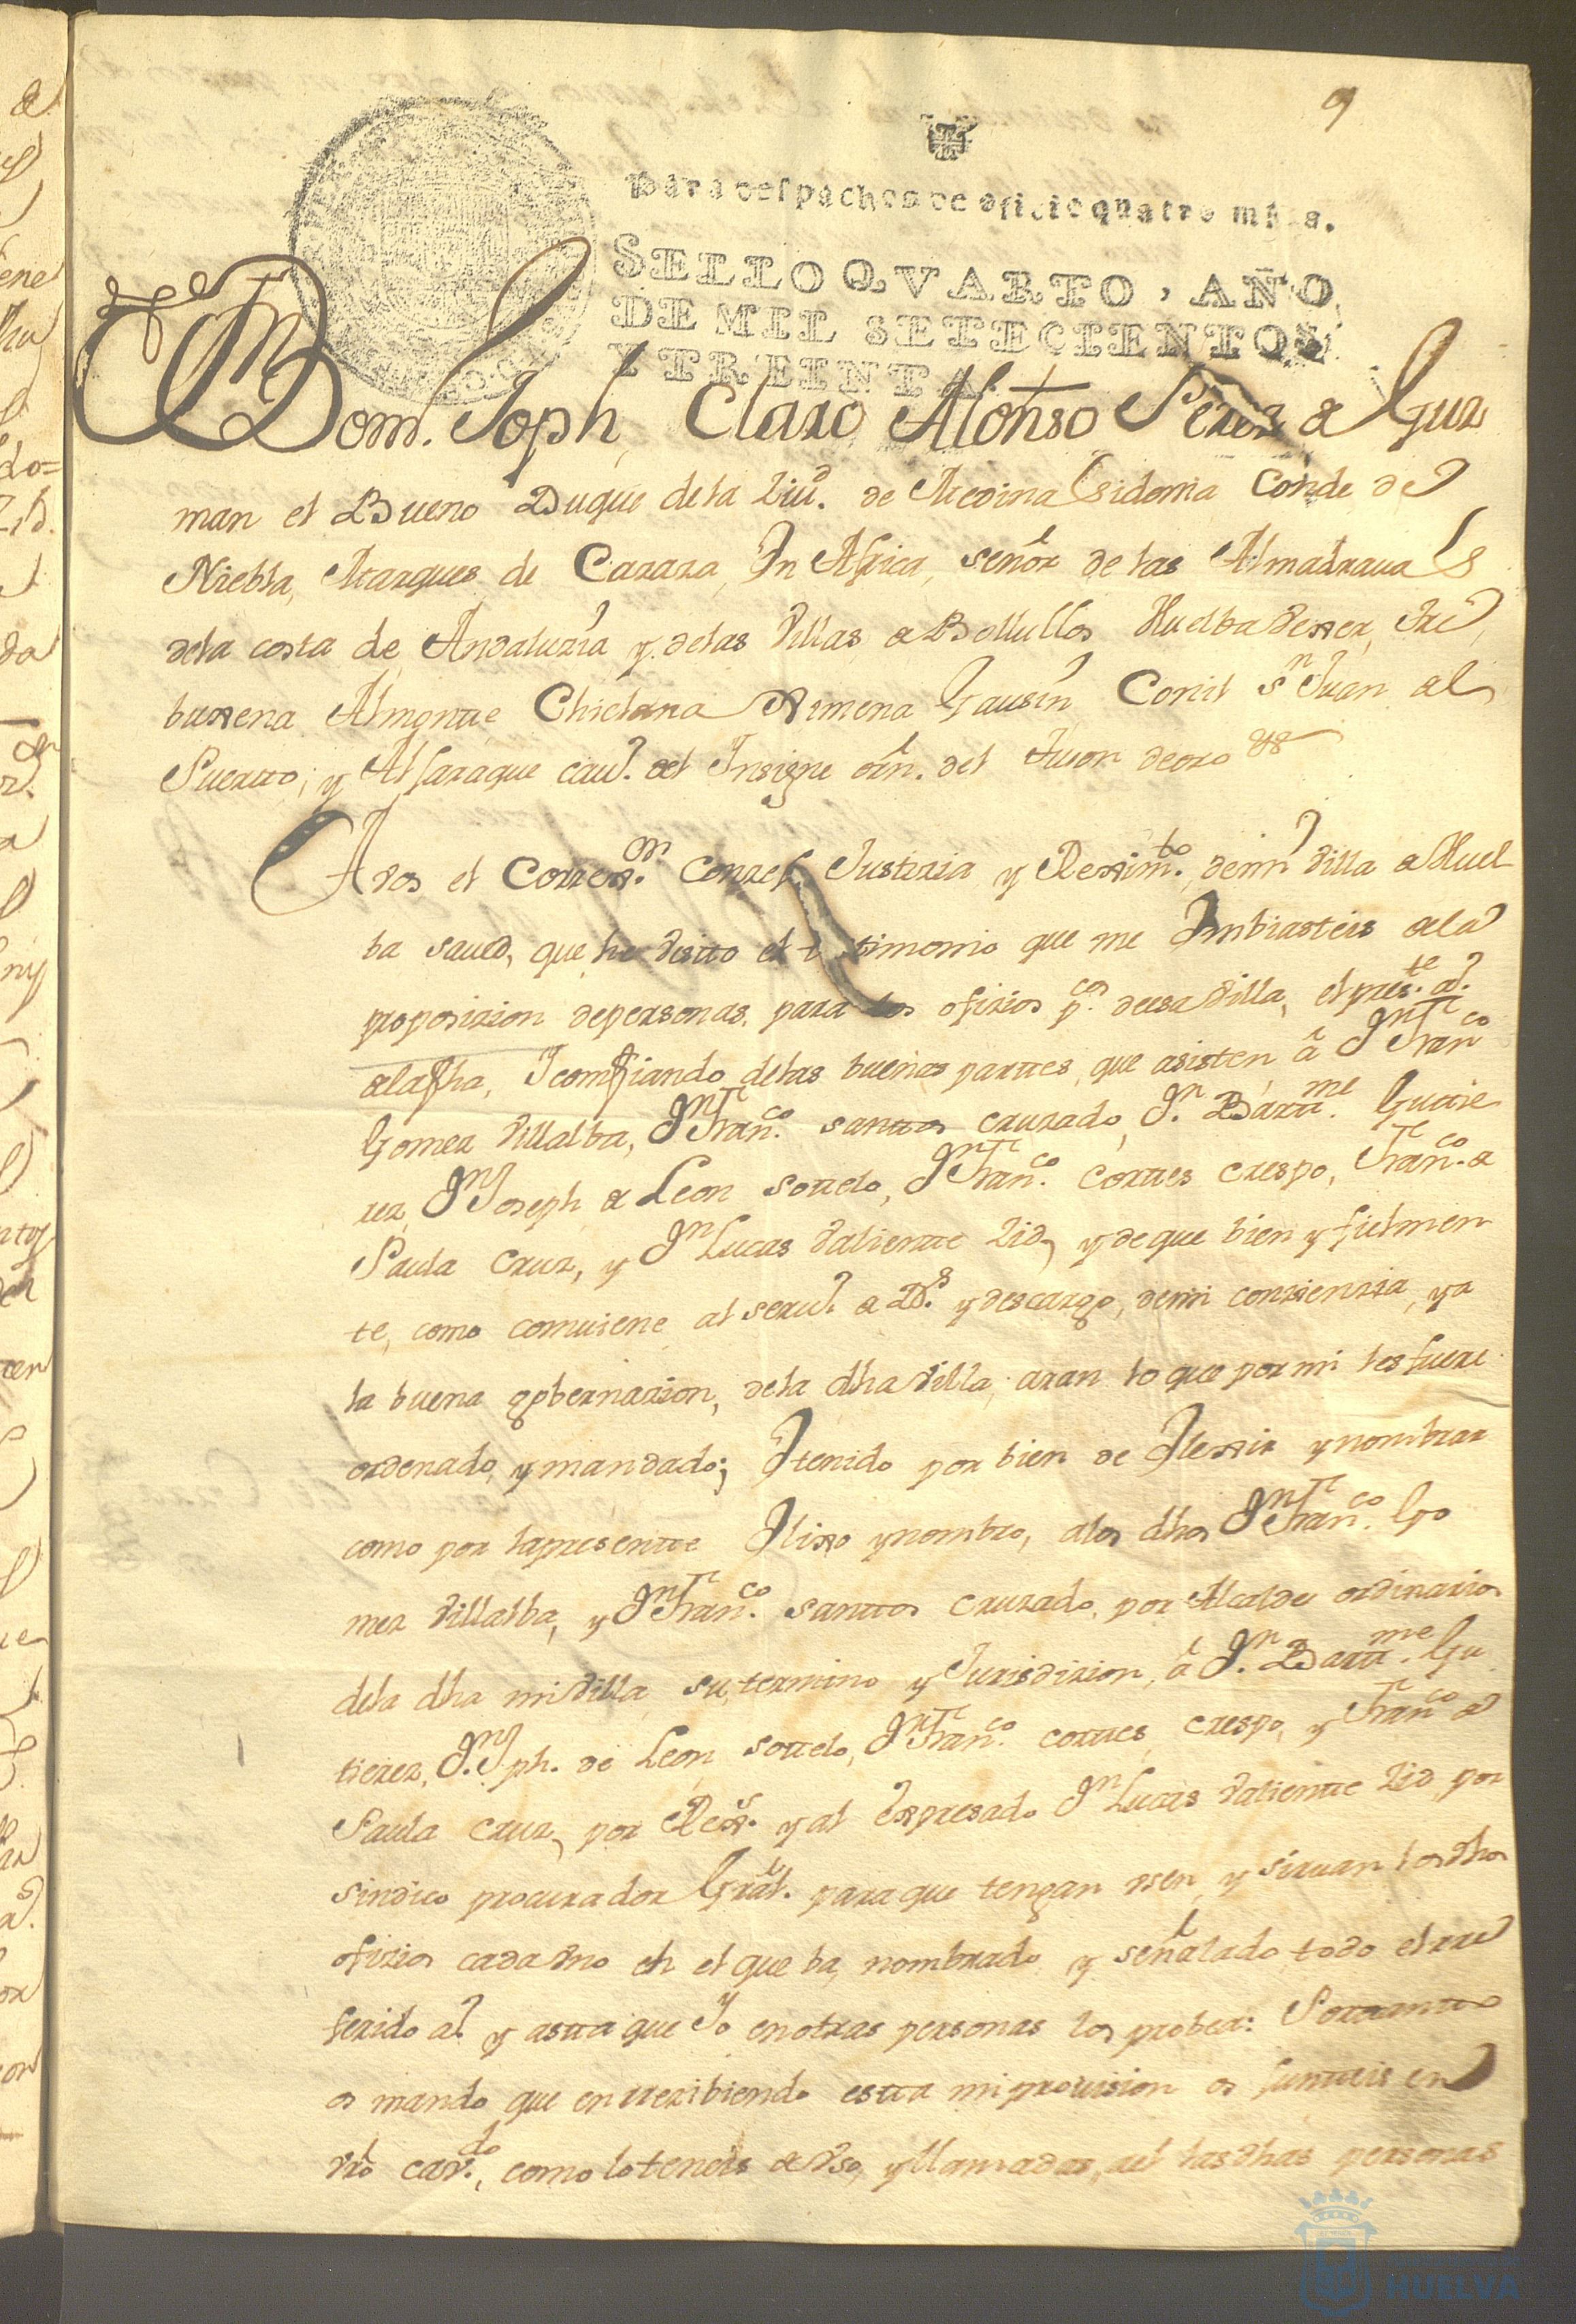 9
Para despachos de oficio quatro mrs.
SELLO QVARTO, AÑO
DE MIL SETECIENTOS
Y TREINTA
Dom. Joph, Claro Alonso Perez de Guz
man el Bueno Duque de la Ziud. de Medina Sidonia Conde de
Niebla, Marques de Cazaza, En Africa, señor de las Almadraua s
dela costa de Andaluzia y delas Villas de Bollullos Huelba Vexer, Tre
buxena Almonte Chiclana Ximena Gausin Conil Sn Juan del
Puerto, y Alfaraque cauo. del Insigne orn. del tuson de oro &&
A vos el Correxor. Conzejo, Justizia y Reximto. demi Villa de Huel
ba saued, que he visto el testimonio que me Embiasteis dela
proposizion depersonas, para los ofizios pcos deesa Villa, el preste. a.
dela fha, Y confiando delas buenas partes, que asisten â Dn Franco
Gomez Villalba, Dn Franco. santos cruzado, Dn. Bartme. Gutie
rez, Dn Joseph de Leon sotelo, Dn Franco. Cortes crespo, Franco. de
Paula Cruz, y Dn Lucas Valiente Zid, y de que bien y fielmen
te, como comuiene, al seruo. de Ds. y descargo, demi conzienzia, y a
la buena gobernazion, dela dha Villa, aran lo que por mi les fuere
ordenado, y mandado; E tenido por bien de Elexir y nombrar
como por la presente Elixo y nombro, alos dhos Dn Franco. Go
mez Villalba, y Dn Franco. santos Cruzado, por Alcaldes ordinarios
dela dha mi Villa, su termino y Jurisdizion, â Dn. Bartme. Gu
tierez, Dn. Jph. de Leon sotelo, Dn Franco. cortes, crespo, y Franco de
Paula cruz, por Rexs. y al Expresado Dn Lucas Valiente Zid, por
sindico procurador Gral. para que tengan vsen, y siruan los dhos
ofizios cada vno en el que ba, nombrado, y señalado, todo el rre
ferido ao. y asta que Yo en otras personas los probea: Portanto
os mando que en rrezibiendo esta mi prouision os junteis en
vro cavdo., como lo teneis de Vso, y llamadas, a el las dhas personas
HUELVA